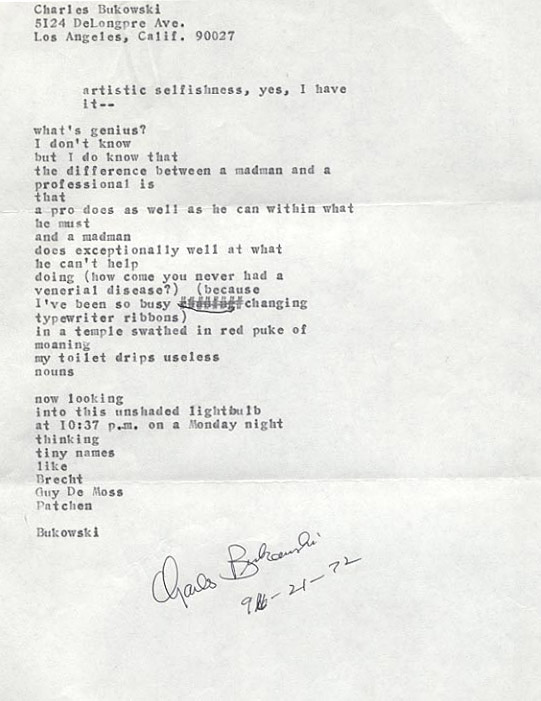 Charles Bukowski
5124 DeLongpre Ave.
Los Angeles, Calif. 90027
artistic selfishness, yes, I have
it--
what's genius?
I don't know
but I do know that
the difference between a madman and a
professional is
that
a pro does as well as he can within what
he must
and a madman
does exceptionally well at what
he can't help
doing (how come you never had a
venerial disease?) (because
I've been so busy changing
typewriter ribbons)
in a temple swathed in red puke of
moaning
my toilet drips useless
nouns
now looking
into this unshaded lightbulb
at 10:37 p.m. on a Monday night
thinking
tiny names
like
Brecht
Guy De Moss
Patchen
Bukowski
Charles Bukowski
-21-72